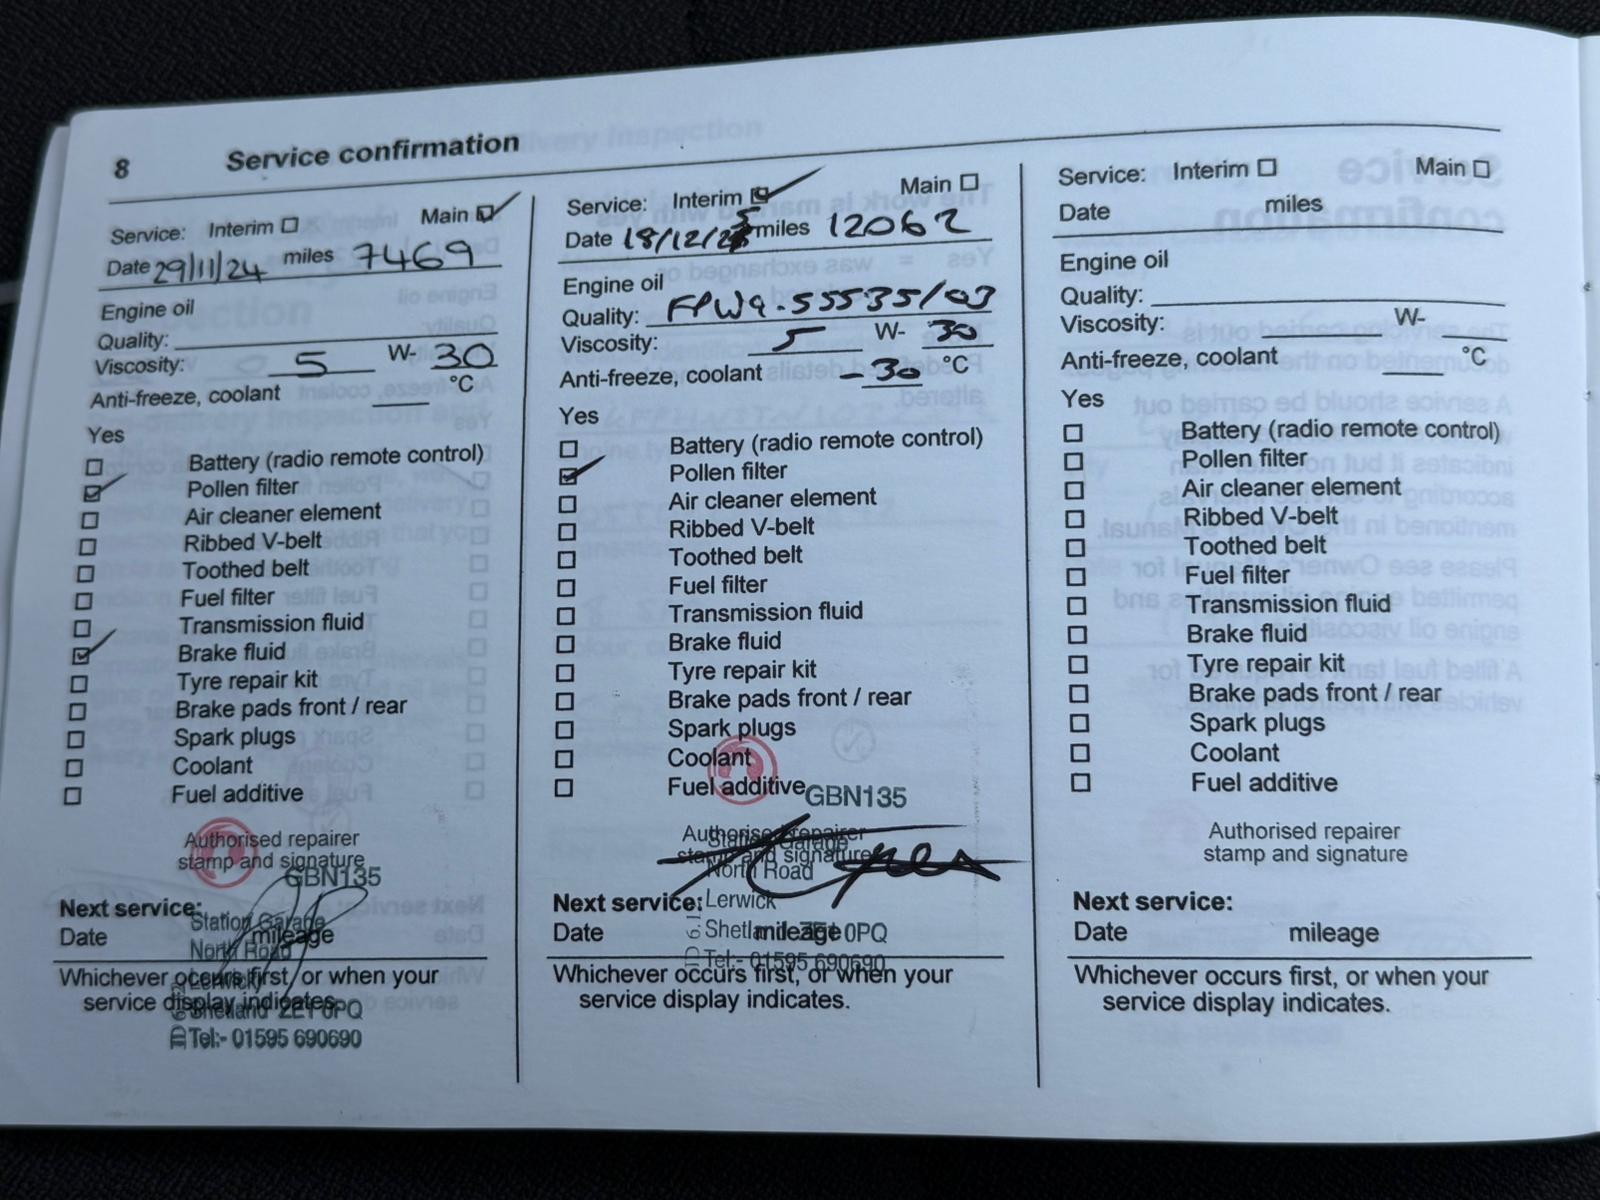 8 Service confirmation
Service: Interim Main
Date 29/11/24 miles 7469
Engine oil
Quality:
Viscosity: 5 W- 30
Anti-freeze, coolant °C
Yes
Battery (radio remote control)
Pollen filter
Air cleaner element
Ribbed V-belt
Toothed belt
Fuel filter
Transmission fluid
Brake fluid
Tyre repair kit
Brake pads front / rear
Spark plugs
Coolant
Fuel additive
Authorised repairer
stamp and signature
GBN135
Station Garage
North Road
Lerwick
Shetland ZE1 0PQ
Tel:- 01595 690690
Next service:
Date mileage
Whichever occurs first, or when your
service display indicates.
Service: Interim Main
Date 18/12/25 miles 12062
Engine oil
Quality:
Viscosity: 5 W- 30
Anti-freeze, coolant -30 °C
Yes
Battery (radio remote control)
Pollen filter
Air cleaner element
Ribbed V-belt
Toothed belt
Fuel filter
Transmission fluid
Brake fluid
Tyre repair kit
Brake pads front / rear
Spark plugs
Coolant
Fuel additive
GBN135
Authorised repairer
stamp and signature
Station Garage
North Road
Lerwick
Shetland ZE1 0PQ
Tel:- 01595 690690
Next service:
Date mileage
Whichever occurs first, or when your
service display indicates.
Service: Interim Main
Date miles
Engine oil
Quality:
Viscosity: W-
Anti-freeze, coolant °C
Yes
Battery (radio remote control)
Pollen filter
Air cleaner element
Ribbed V-belt
Toothed belt
Fuel filter
Transmission fluid
Brake fluid
Tyre repair kit
Brake pads front / rear
Spark plugs
Coolant
Fuel additive
Authorised repairer
stamp and signature
Next service:
Date mileage
Whichever occurs first, or when your
service display indicates.